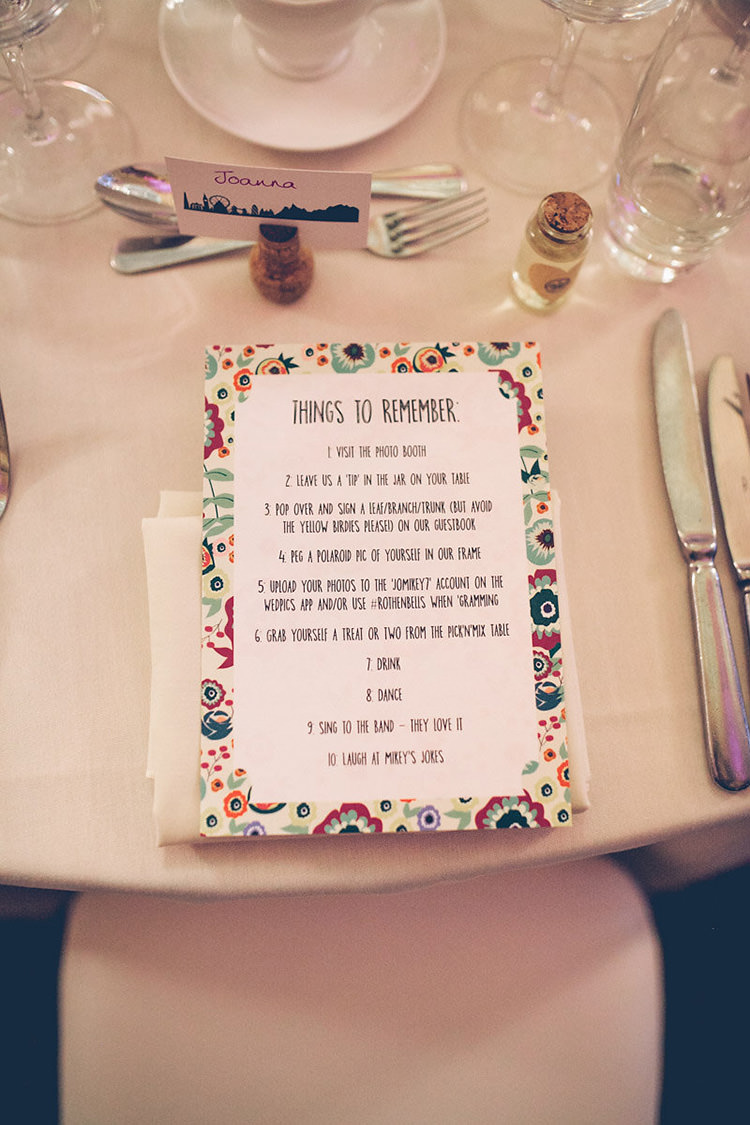 Joanna
THINGS TO REMEMBER:
1. VISIT THE PHOTO BOOTH
2. LEAVE US A 'TIP' IN THE JAR ON YOUR TABLE
3. POP OVER AND SIGN A LEAF/BRANCH/TRUNK (BUT AVOID
THE YELLOW BIRDIES PLEASE!) ON OUR GUESTBOOK
4. PEG A POLAROID PIC OF YOURSELF IN OUR FRAME
5. UPLOAD YOUR PHOTOS TO THE 'JOMIKEY7' ACCOUNT ON THE
WEDPICS APP AND/OR USE #ROTHENBELLS WHEN 'GRAMMING
6. GRAB YOURSELF A TREAT OR TWO FROM THE PICK'N'MIX TABLE
7. DRINK
8. DANCE
9. SING TO THE BAND – THEY LOVE IT
10. LAUGH AT MIKEY'S JOKES